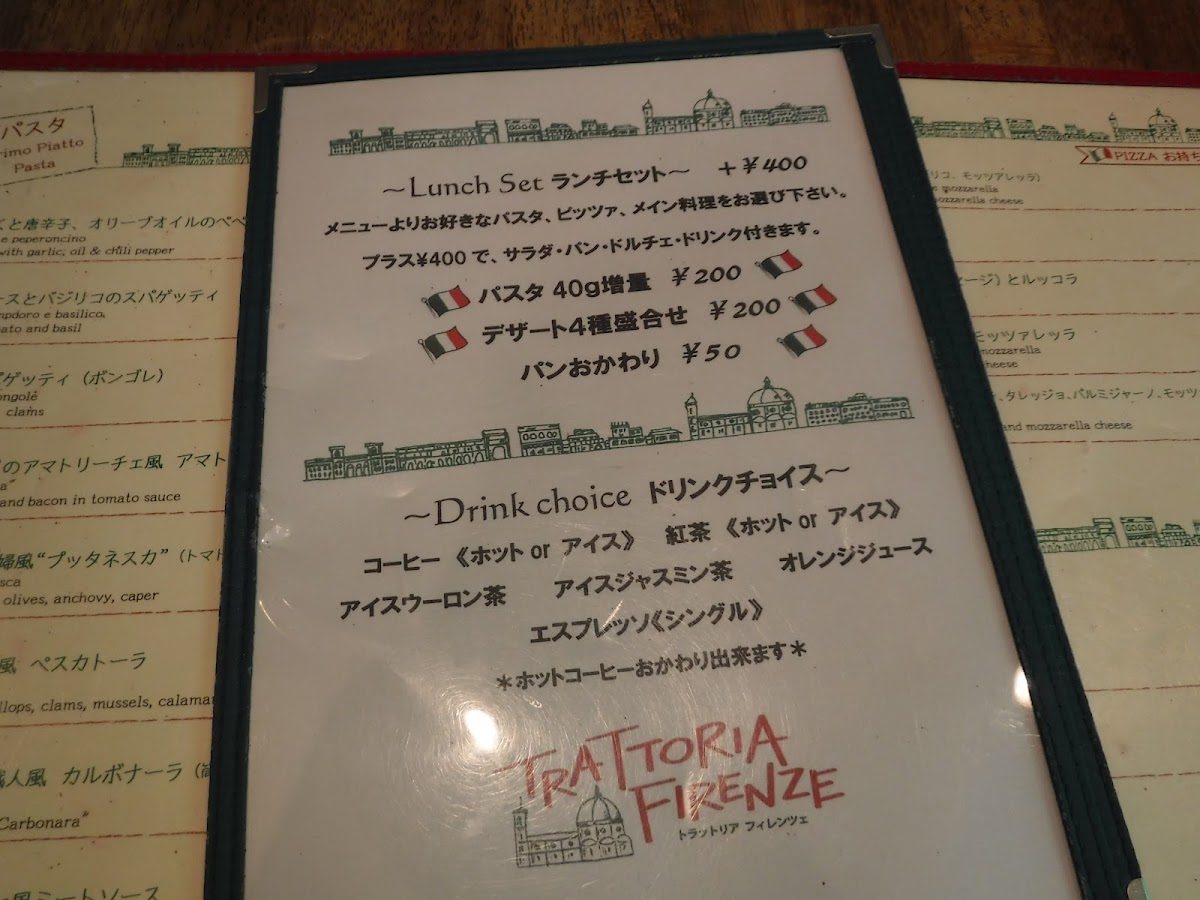 パスタ
rimo Piatto
Pasta
と唐辛子、オリーブオイルのペペ
e peperoncino
with garlic, oil & chili pepper
ースとバジリコのスパゲッティ
mpdoro e basilico,
ato and basil
ゲッティ (ボンゴレ)
ongole
clams
のアマトリーチェ風 アマト
a"
and bacon in tomato sauce
婦風"プッタネスカ" (トマト
sca
olives, anchovy, caper
風 ペスカトーラ
llops, clams, mussels, calamar
職人風 カルボナーラ
Carbonara"
風ミートソース
~Lunch Set ランチセット~ +¥400
メニューよりお好きなパスタ、ピッツァ、メイン料理をお選び下さい。
プラス¥400で、サラダ・パン・ドルチェ・ドリンク付きます。
パスタ 40g増量 ¥200
デザート4種盛合せ ¥200
パンおかわり ¥50
~Drink choice ドリンクチョイス~
コーヒー 《ホット or アイス》 紅茶 《ホット or アイス》
アイスウーロン茶 アイスジャスミン茶 オレンジジュース
エスプレッソ《シングル》
*ホットコーヒーおかわり出来ます*
TRATTORIA
FIRENZE
トラットリア フィレンツェ
PIZZA お持ち
リコ、モッツアレッラ)
e mozzarella
mozzarella cheese
ージ) とルッコラ
モッツァレッラ
mozzarella
cheese
、タレッジョ、パルミジャーノ、モッツ
and mozzarella cheese